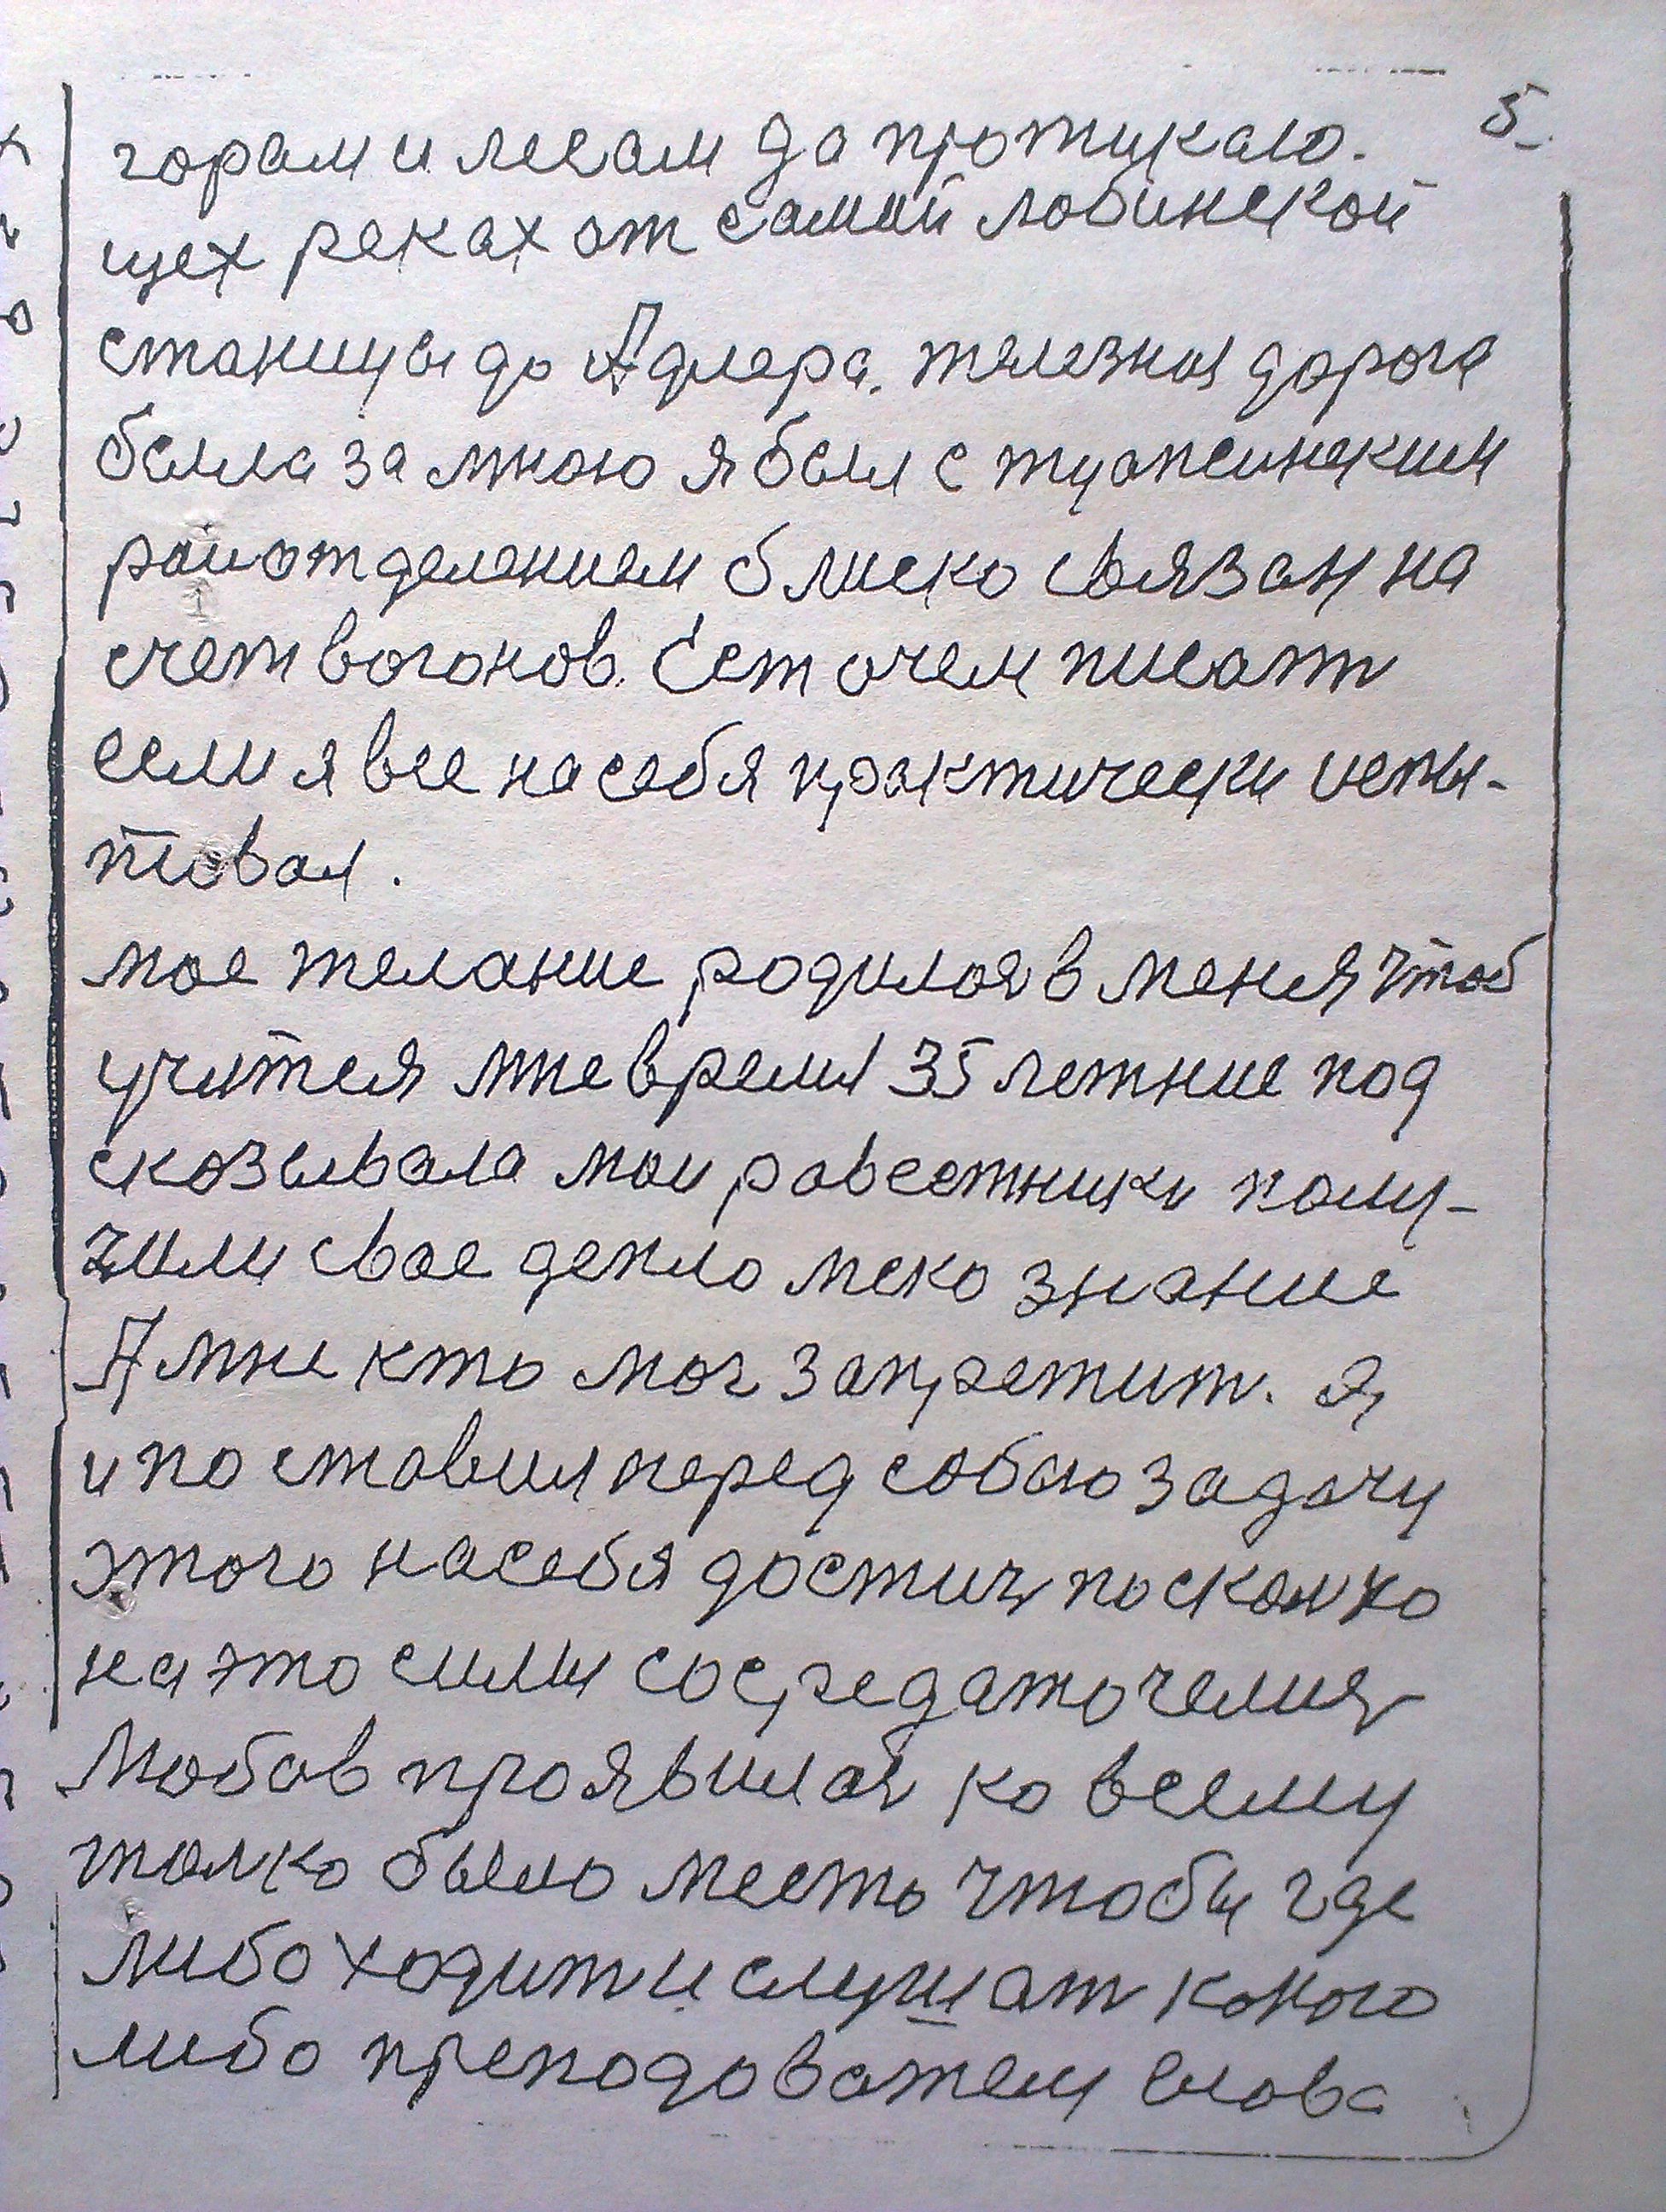 5
горам и лесам да протикаю.
щех реках от самий лобинской
станицы до Адлера. телезная дорога
была за мною я был с туапсинским
райотделением блиско связан на
счет вогонов. Ест очем писат
если я все на себя практически испы-
товал.
мое телание родилося в меня чтоб
учится мне время 35 летние под
сказывала мои равестники полу-
чили свое депло меко знание
А мне кто мог запретит. Я
и поставил перед собою задачу
этого на себя достич посколко
на это силы сосредаточелися
Любов проявилася ко всему
толко было место чтобы где
либо ходит и слушат какого
либо преподователи слова